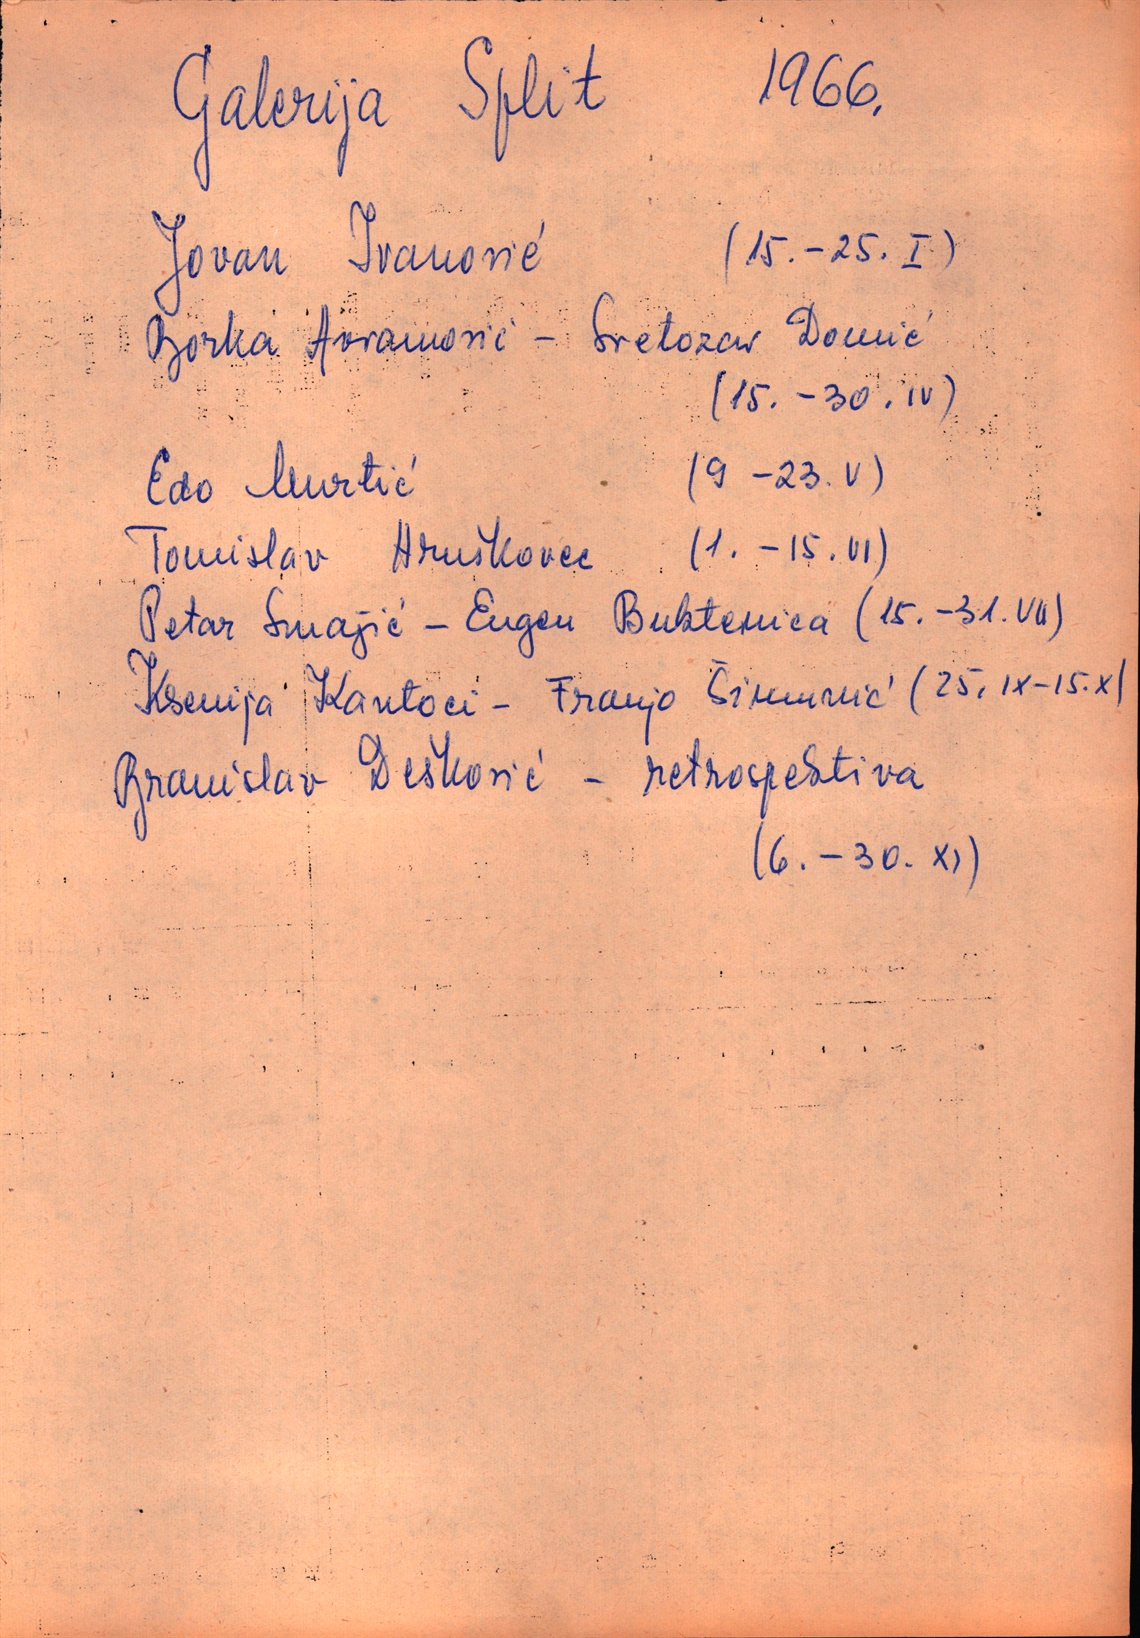 Galerija Split 1966.
Jovan Ivanović (15.-25. I)
Borka Avramović - Svetozar Domić
(15. -30. IV)
Edo Murtić (9 -23. V)
Tomislav Hruškovec (1. -15. VI)
Petar Smajić - Eugen Buktenica (15.-31. VII)
Ksenija Kantoci - Franjo Šimunić (25. IX-15. X)
Branislav Dešković - retrospektiva
(6. -30. XI)